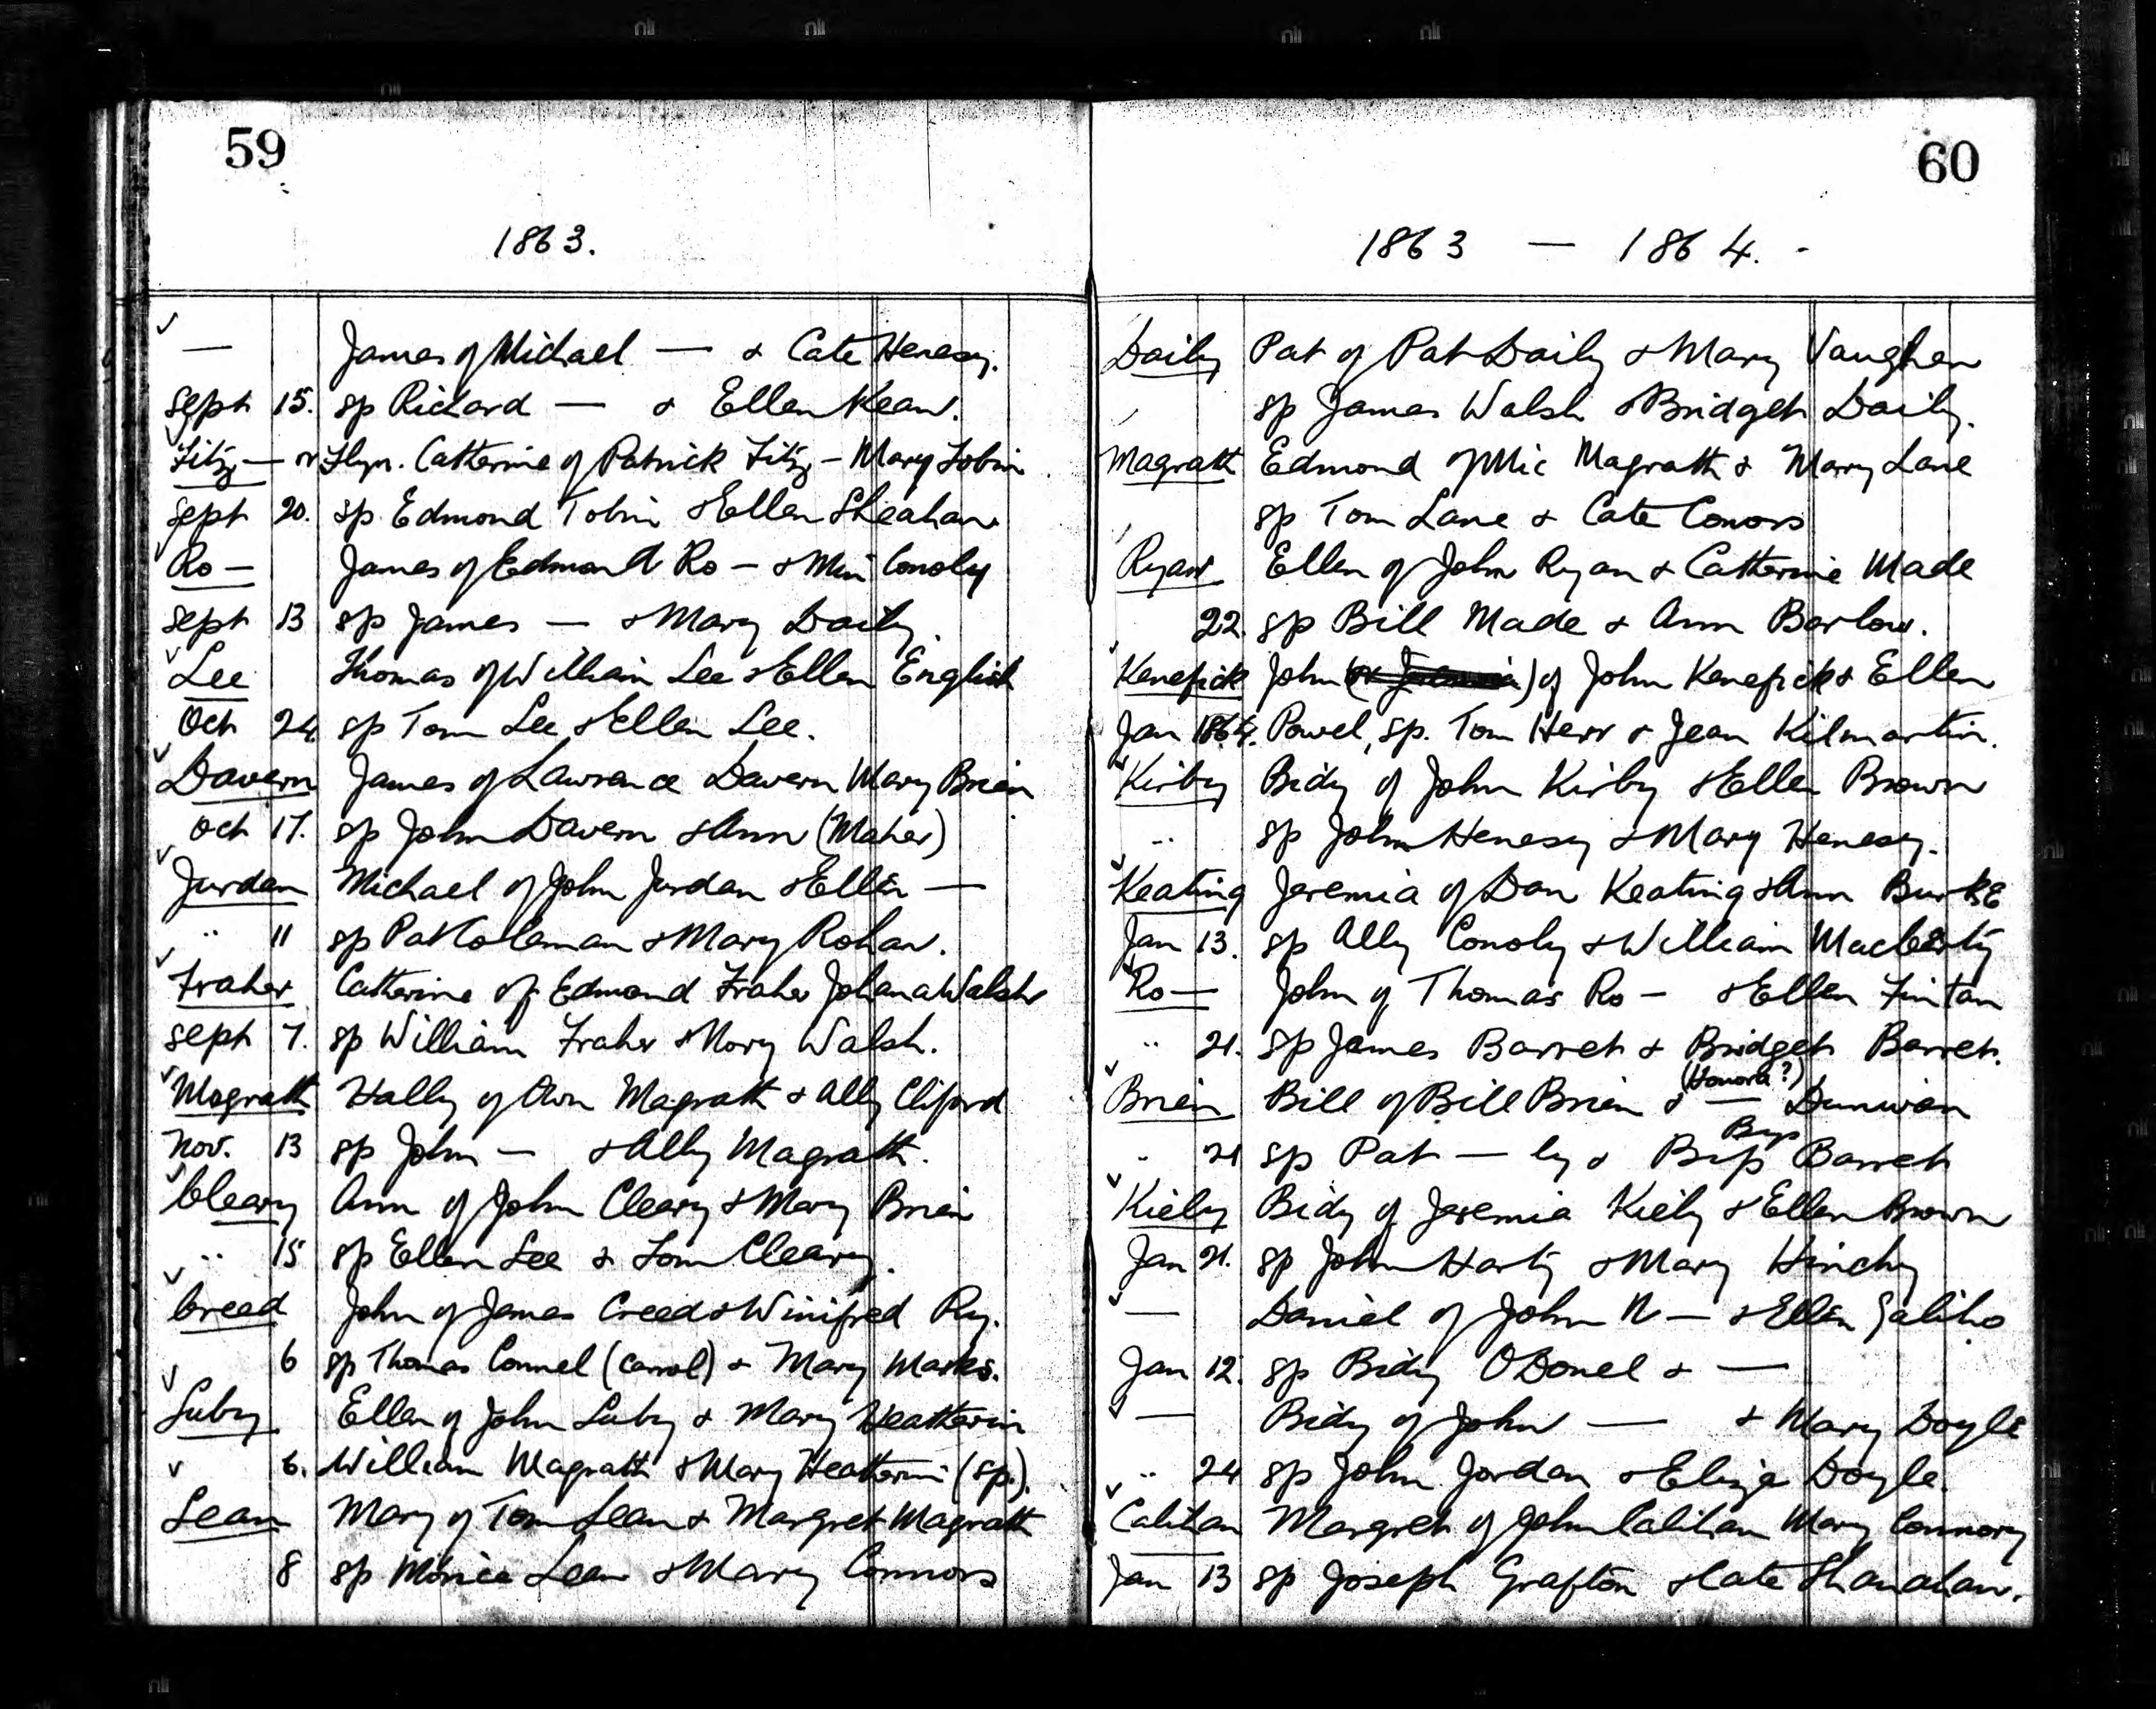 59
1863.
— James of Michael — & Cate Henesy.
Sept 15. sp Richard — & Ellen Kean.
Fitz — or Flyn. Catherine of Patrick Fitz — Mary Tobin
Sept 20. sp Edmond Tobin & Ellen Sheahan
Ro — James of Edmond Ro — & Min Conoly
Sept 13 sp James — & Mary Daily.
Lee Thomas of William Lee & Ellen English
Oct 24 sp Tom Lee & Ellen Lee.
Davern James of Lawrance Davern Mary Brien
Oct 17. sp John Davern & Ann (Maher)
Jurdan Michael of John Jurdan & Ellen —
" 11 sp Pat Coleman & Mary Rohan.
Fraher Catherine of Edmond Fraher Johana Walsh
Sept 7. sp William Fraher & Mary Walsh.
Magrath Hally of Own Magrath & Ally Cliford
Nov. 13 sp John — & Ally Magrath.
Cleary Ann of John Cleary & Mary Brien
" 15 sp Ellen Lee & Tom Cleary.
Creed John of James Creed & Winifred Ry.
6 sp Thomas Connel (Carrol) & Mary Marks.
Luby Ellen of John Luby & Mary Heatherin
6. William Magrath & Mary Heatherin (sp.)
Lean Mary of Tom Lean & Margret Magrath
8 sp Monica Lean & Mary Connors
60
1863 — 1864. -
Daily Pat of Pat Daily & Mary Vaughen
sp James Walsh & Bridget Daily.
Magrath Edmond of Mic Magrath & Mary Lane
sp Tom Lane & Cate Conors
Ryan Ellen of John Ryan & Catherine Made
22. sp Bill Made & Ann Barlow.
Kenefick John (or Jeremia) of John Kenefick & Ellen
Jan 1864. Powel, sp. Tom Herr & Jean Kilmartin.
Kirby Bidy of John Kirby & Ellen Brown
" sp John Henesy & Mary Henesy.
Keating Jeremia of Dan Keating & Ann Burke
Jan 13. sp Ally Conoly & William
Ro — John of Thomas Ro — & Ellen Fintan
" 21. sp James Barret & Bridget Barret.
(Honora ?)
Brien Bill of Bill Brien & — Dunivan
Bys
" 21 sp Pat — ly & Barret
Kiely Bidy of Jeremia Kiely & Ellen Brown
Jan 21. sp John Harty & Mary Hinchy
— Daniel of John N — & Ellen Galiho
Jan 12. sp Bidy ODonel & —
— Bidy of John — & Mary Doyle
" 24 sp John Jordan & Eliza Doyle.
Calihan Margret of John Calihan Mary Connory
Jan 13 sp Joseph Grafton & Cate Shanahan.